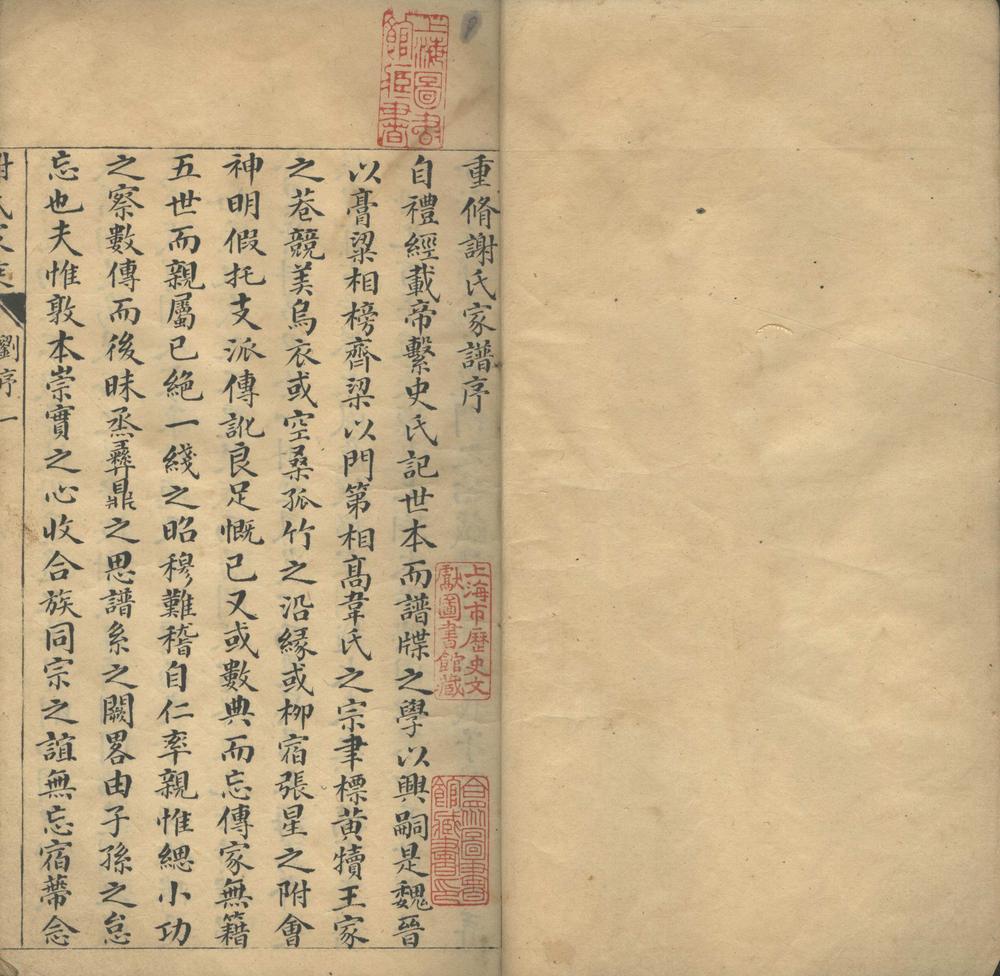 重脩謝氏家譜序
自禮經載帝繫史氏記世本而譜牒之學以興嗣是魏晉
以膏粱相榜齊梁以門第相髙韋氏之宗聿標黄犢王家
之巷競美烏衣或空桑孤竹之沿緣或柳宿張星之附會
神明假托支派傳訛良足慨已又或數典而忘傳家無籍
五世而親屬已絶一綫之昭穆難稽自仁率親惟緦小功
之察數傳而後昧烝彝鼎之思譜系之闕畧由子孫之怠
忘也夫惟敦本崇實之心收合族同宗之誼無忘宿蕚念
謝氏家乘
劉序
一
上海圖書館藏書
上海市歷史文獻圖書館藏
圖書館藏書